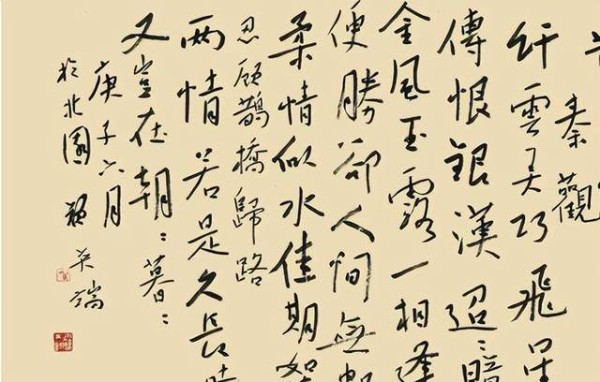 秦觀
纤雲弄巧飛星
傳恨銀漢迢々暗
金風玉露一相逢
便勝卻人间無數
柔情似水佳期如
忍顧鵲橋歸路
兩情若是久長時
又豈在朝々暮々
庚子六月
於北國